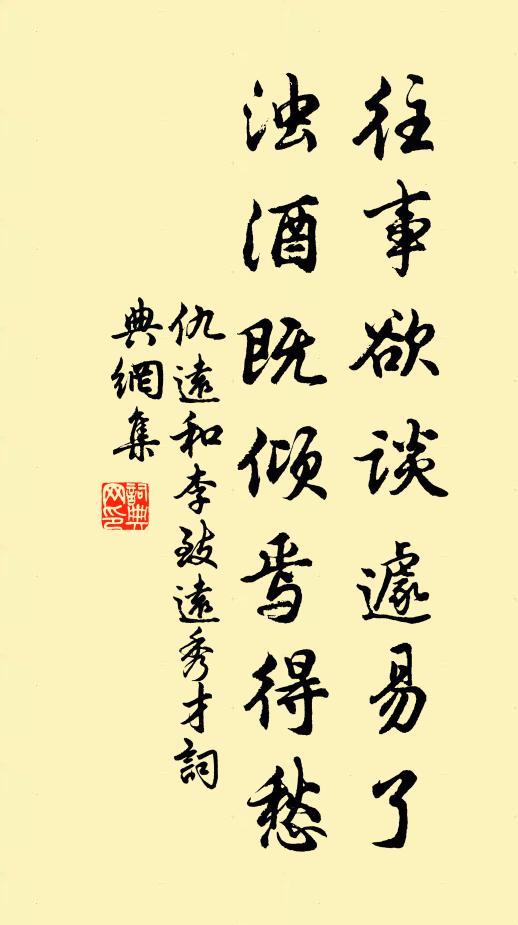 往事欲谈遽易了
浊酒既倾焉得愁
仇遠和李致遠秀才詞
典網集
詞典网印